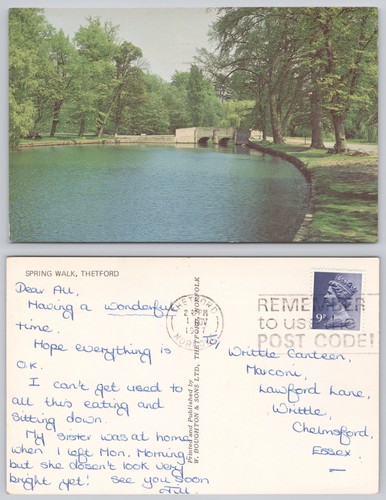 SPRING WALK, THETFORD
Dear All,
Having a wonderful
time.
Hope everything is
O.K.
I can't get used to
all this eating and
sitting down.
My sister was at home
when I left Mon. Morning,
but she doesn't look very
bright yet! See you soon
Jill.
Printed and Published by
W. BOUGHTON & SONS LTD, THETFORD, NORFOLK
THETFORD
NORFOLK
REMEMBER
to use the
POST CODE!
9P
To/
Writtle Canteen,
Marconi,
Lawford Lane,
Writtle,
Chelmsford,
Essex.